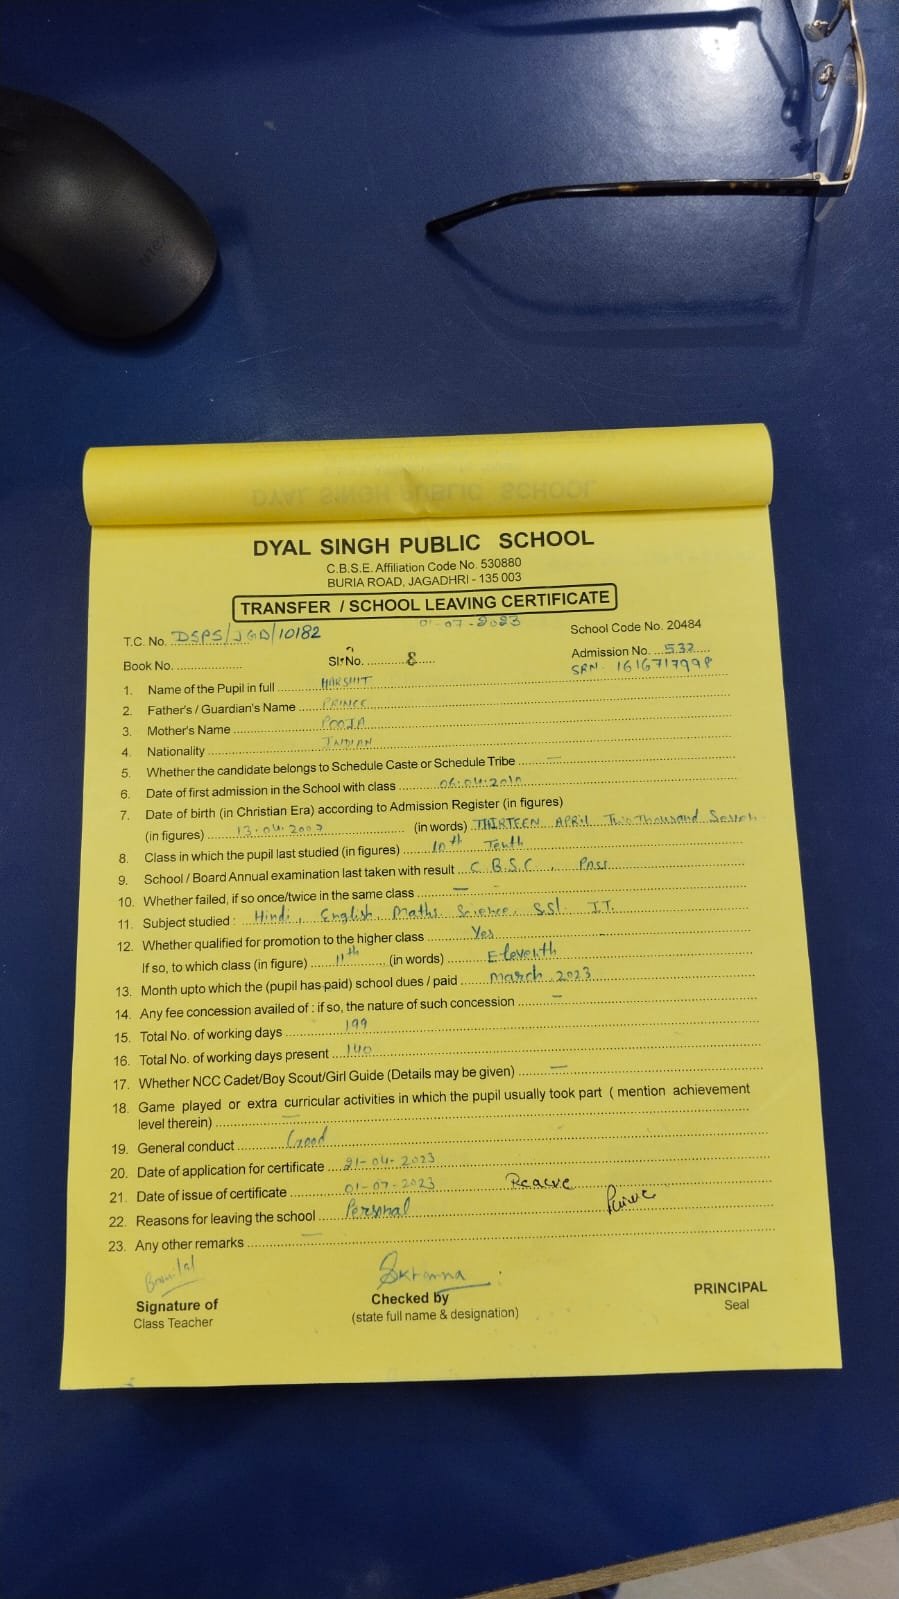 DYAL SINGH PUBLIC SCHOOL
DYAL SINGH PUBLIC SCHOOL
C.B.S.E. Affiliation Code No. 530880
BURIA ROAD, JAGADHRI - 135 003
TRANSFER / SCHOOL LEAVING CERTIFICATE
01-07-2023
T.C. No. DSPS/JGD/10182 School Code No. 20484
Book No. .................. Sl. No. ..........8..... Admission No. ...532....
SRN- 1616717998
1. Name of the Pupil in full HARSHIT
2. Father's / Guardian's Name PRINCE
3. Mother's Name POOJA
4. Nationality INDIAN
5. Whether the candidate belongs to Schedule Caste or Schedule Tribe —
6. Date of first admission in the School with class 06.04.2010
7. Date of birth (in Christian Era) according to Admission Register (in figures)
(in figures) 13.04.2007 (in words) THIRTEEN APRIL Two Thousand Seven
8. Class in which the pupil last studied (in figures) 10th Tenth
9. School / Board Annual examination last taken with result C.B.S.C, Pass
10. Whether failed, if so once/twice in the same class —
11. Subject studied : Hindi, English, Maths, Science, SSt. I.T.
12. Whether qualified for promotion to the higher class Yes
If so, to which class (in figure) 11th (in words) Eleventh
13. Month upto which the (pupil has paid) school dues / paid March 2023
14. Any fee concession availed of : if so, the nature of such concession —
15. Total No. of working days 199
16. Total No. of working days present 140
17. Whether NCC Cadet/Boy Scout/Girl Guide (Details may be given) —
18. Game played or extra curricular activities in which the pupil usually took part ( mention achievement
level therein) —
19. General conduct Good
20. Date of application for certificate 21-04-2023
21. Date of issue of certificate 01-07-2023
22. Reasons for leaving the school Personal
23. Any other remarks —
Signature of Checked by PRINCIPAL
Class Teacher (state full name & designation) Seal